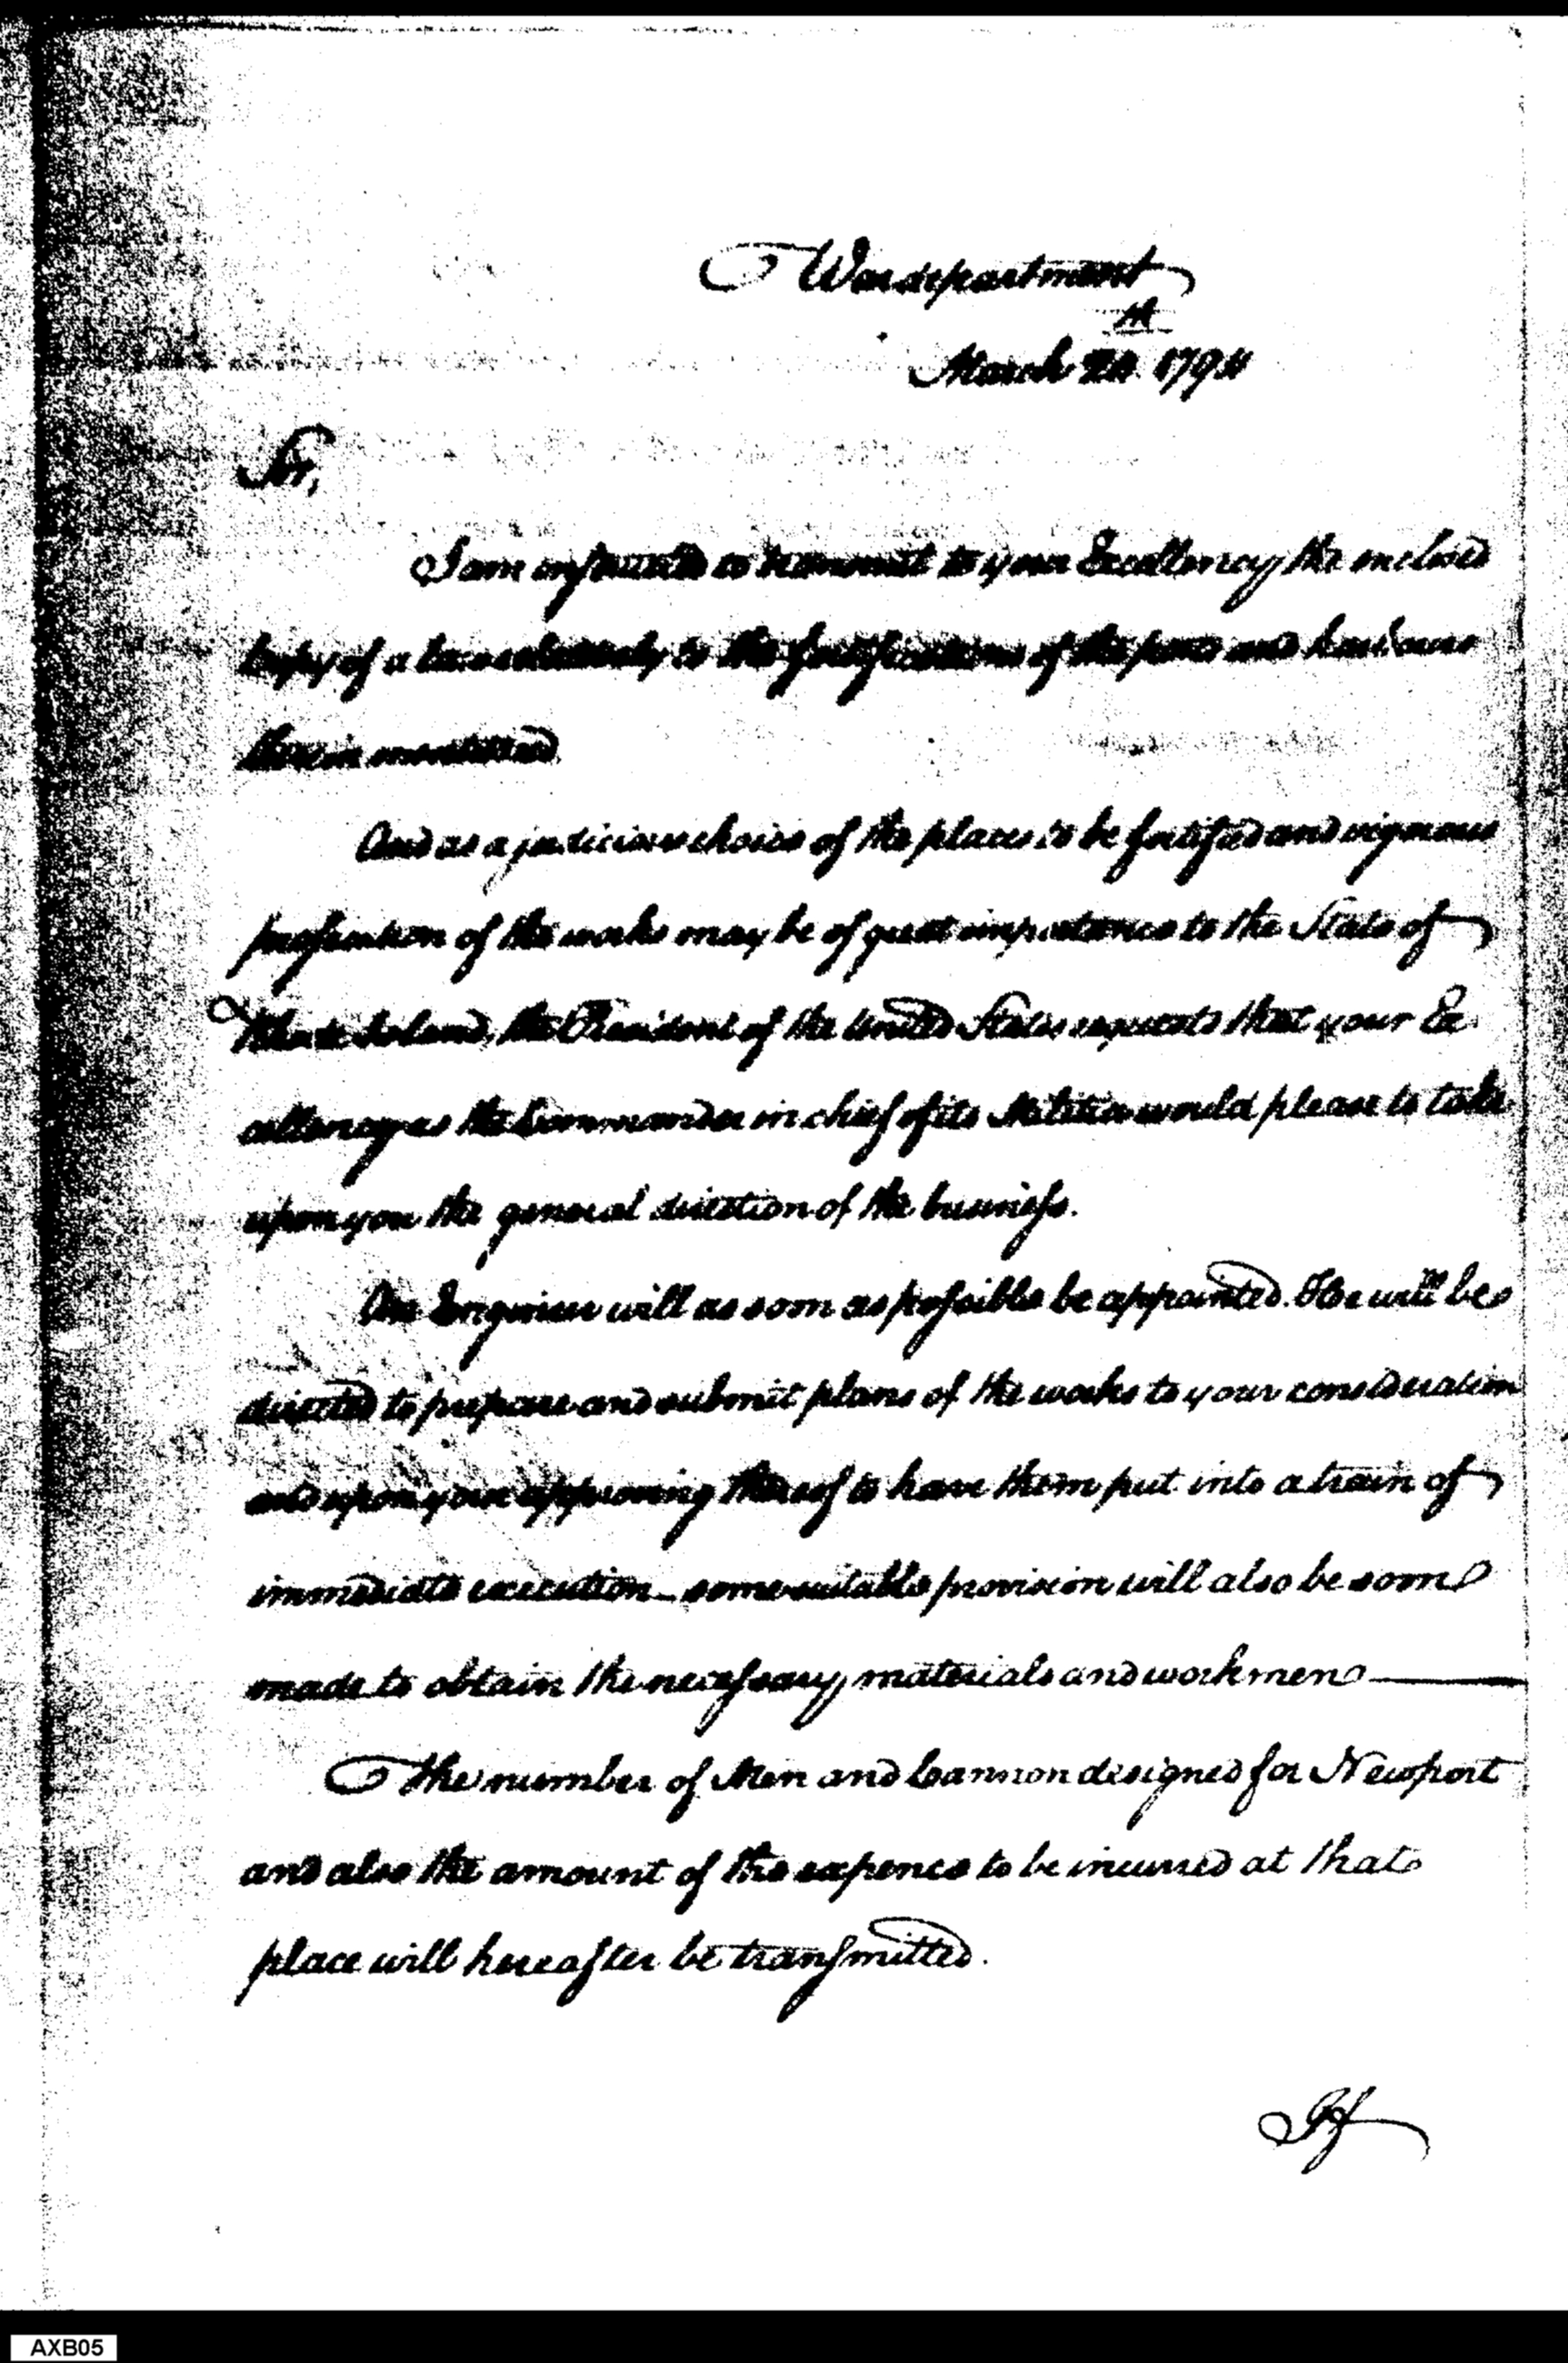 War department
March 24th 1794
Sir,
I am instructed to transmit to your Excellency the inclosed
Copy of a law relatively to the fortifications of the ports and harbours
therein mentioned
And as a judicious choice of the places to be fortified and vigorous
prosecution of the works may be of great importance to the State of
Rhode Island, the President of the United States requests that your Ex
cellency as the Commander in chief of its Militia would please to take
upon you the general direction of the business.
An Engineer will as soon as possible be appointed. He will be
directed to prepare and submit plans of the works to your consideration
and upon your approving thereof to have them put into a train of
immediate execution – some suitable provision will also be soon
made to obtain the necessary materials and workmen
The number of Men and Cannon designed for Newport
and also the amount of the expence to be incurred at that
place will hereafter be transmitted.
AXB05